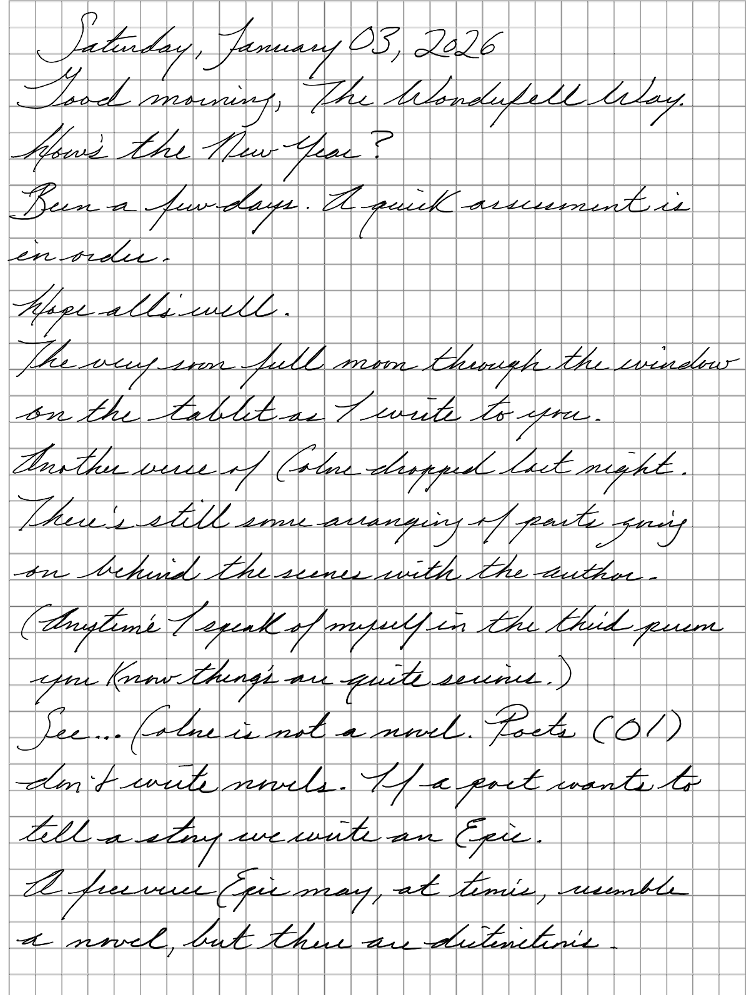 Saturday, January 03, 2026
Good morning, The Wonderfell Way.
How's the New Year?
Been a few days. A quick assessment is
in order.
Hope all's well.
The very soon full moon through the window
on the tablet as I write to you.
Another verse of Colne dropped last night.
There's still some arranging of parts going
on behind the scenes with the author.
(Anytime I speak of myself in the third person
you know things are quite serious.)
See... Colne is not a novel. Poets (01)
don't write novels. If a poet wants to
tell a story we write an Epic.
A free verse Epic may, at times, resemble
a novel, but there are distinctions.